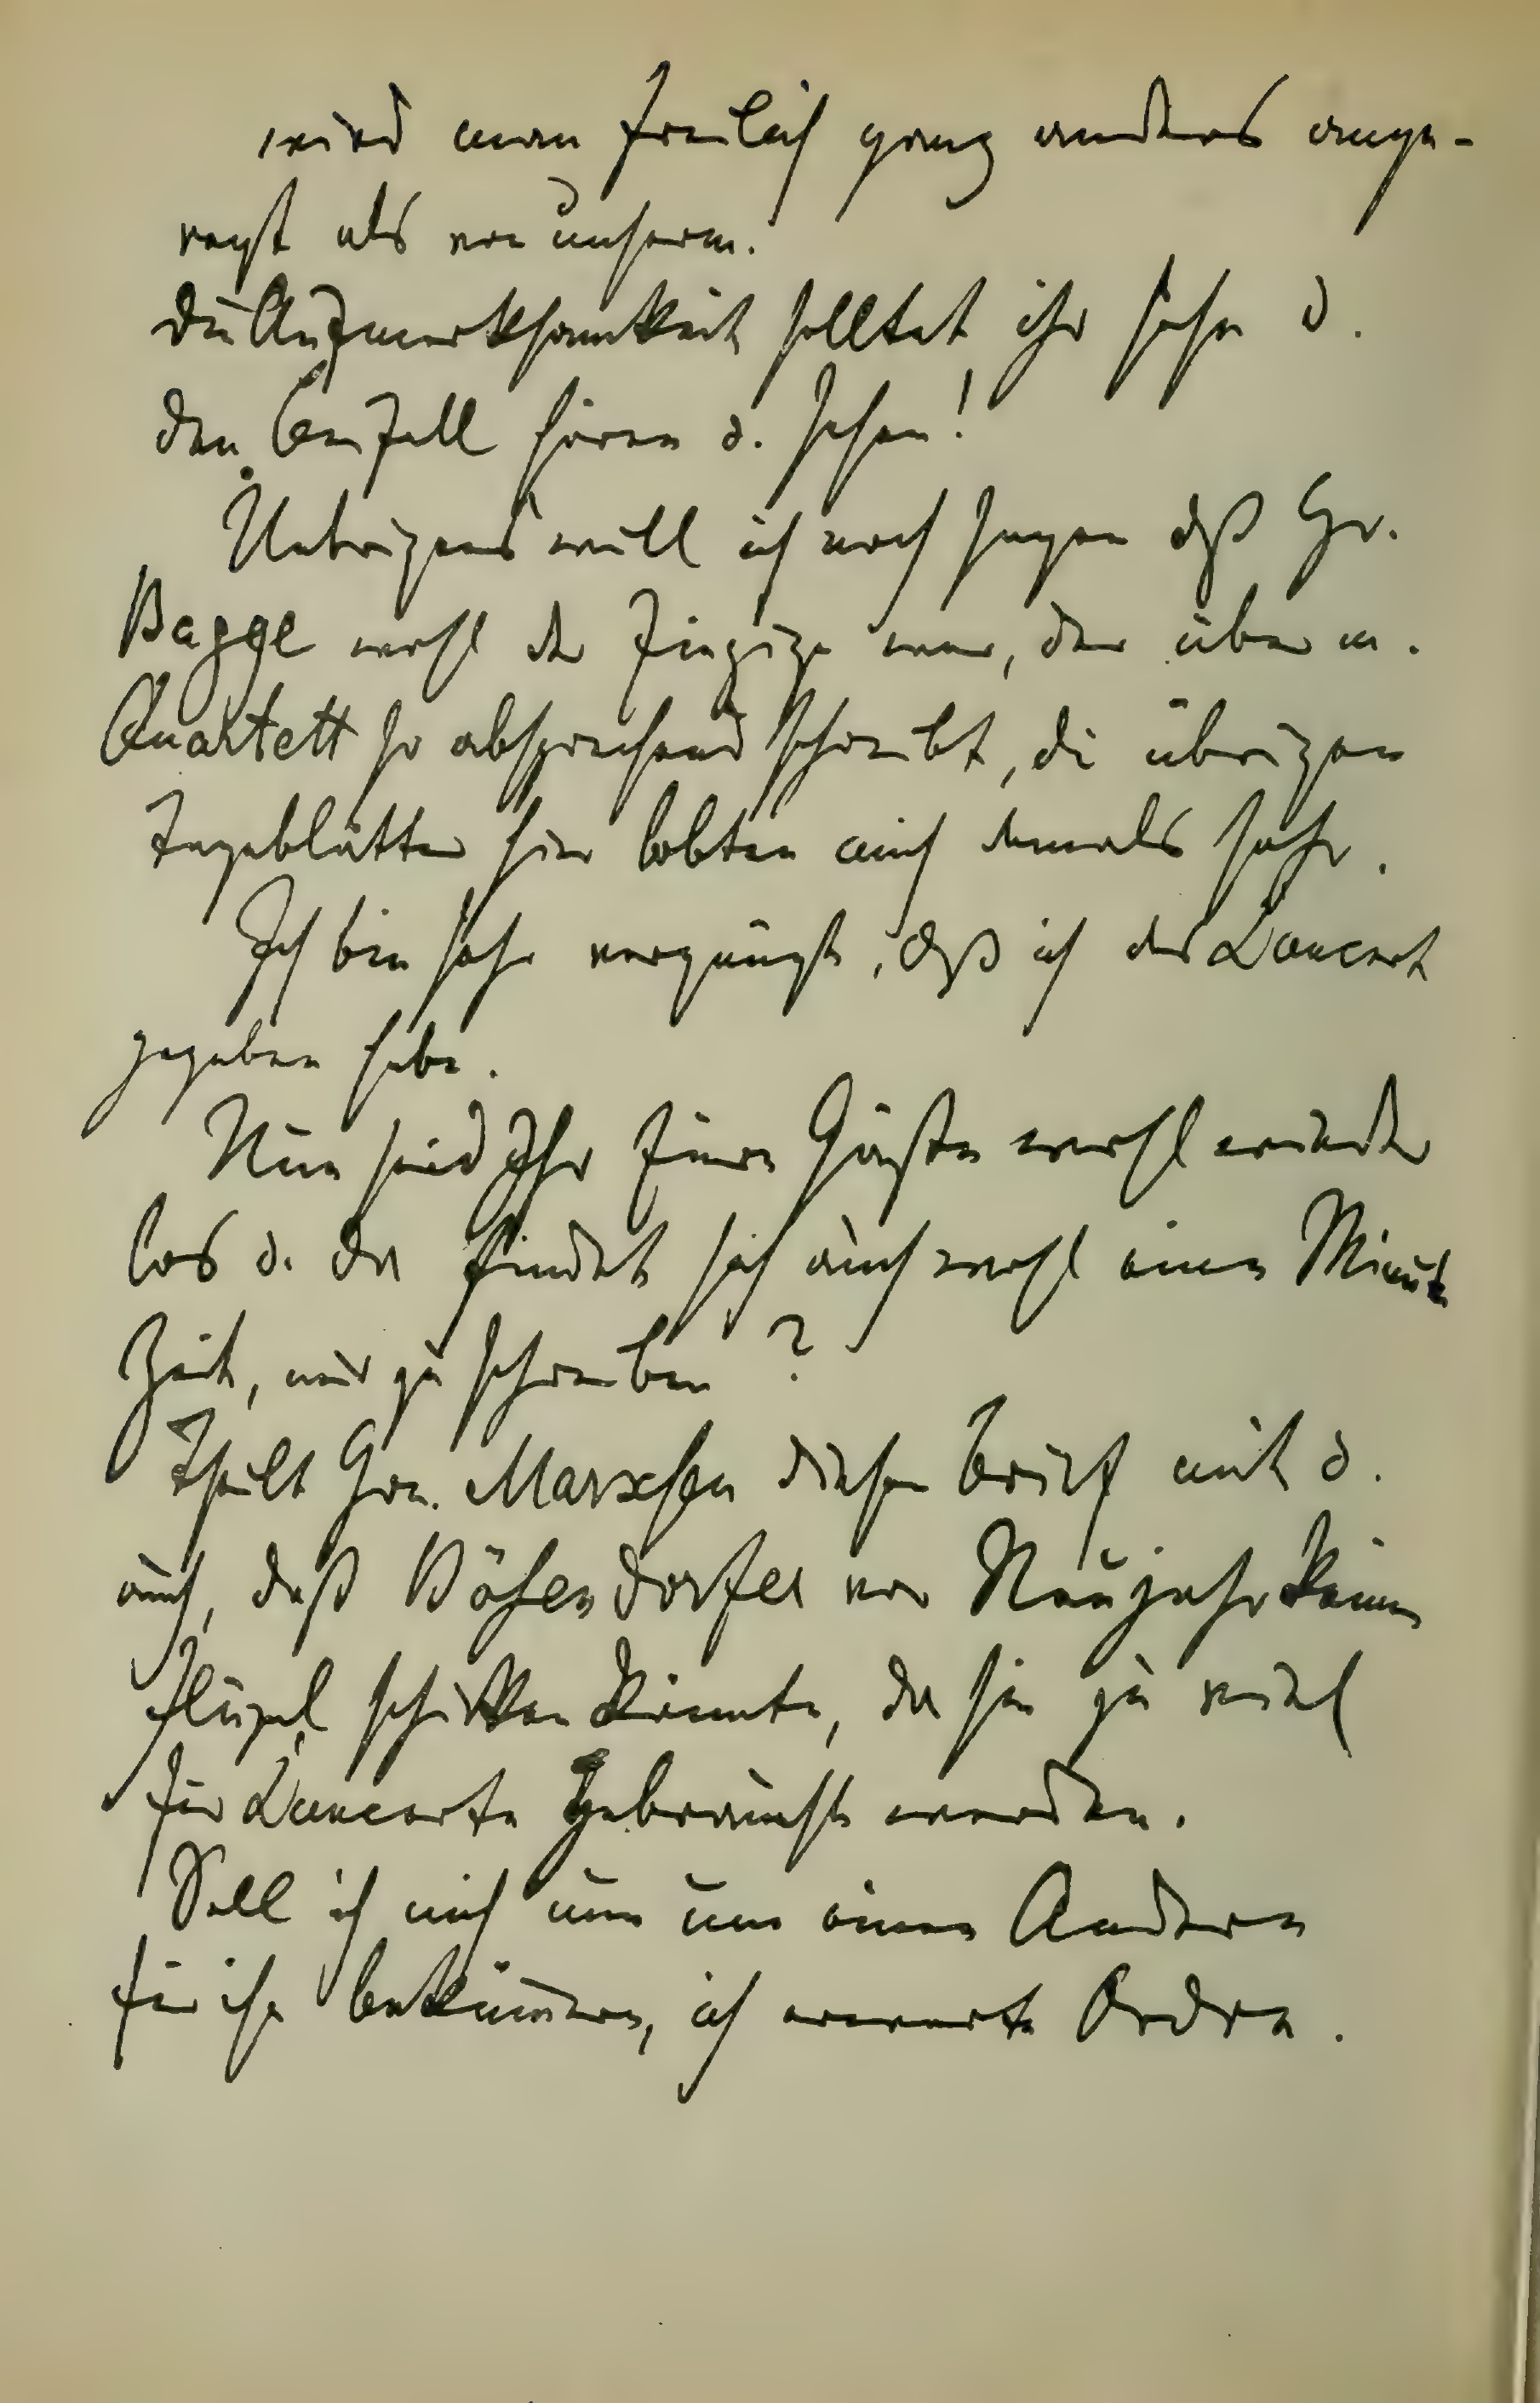 wird man freilich ganz anders ange-
regt als von unserm.
Die Aufmerksamkeit solltet ihr sehn u.
den Beifall hören u. sehen!
Uebrigens will ich noch sagen dß Hr.
Bagge wohl der Einzige war, der über m.
Quartett so absprechend schreibt, die übrigen
Tageblätter hier lobten mich damals sehr.
Ich bin sehr vergnügt, dß ich das Concert
gegeben habe.
Nun seid Ihr Eure Gäste wohl wieder
los u. da findet sich auch wohl eine Minute
Zeit, mir zu schreiben?
Theilt Hrn. Marxsen diesen Brief mit u.
auch, daß Bösendorfer vor Neujahr keinen
Flügel schikken könnte, da sie zu viel
für Concerte gebraucht werden.
Soll ich mich nun um einen Andern
für ihn bekümmern, ich erwarte Ordre.